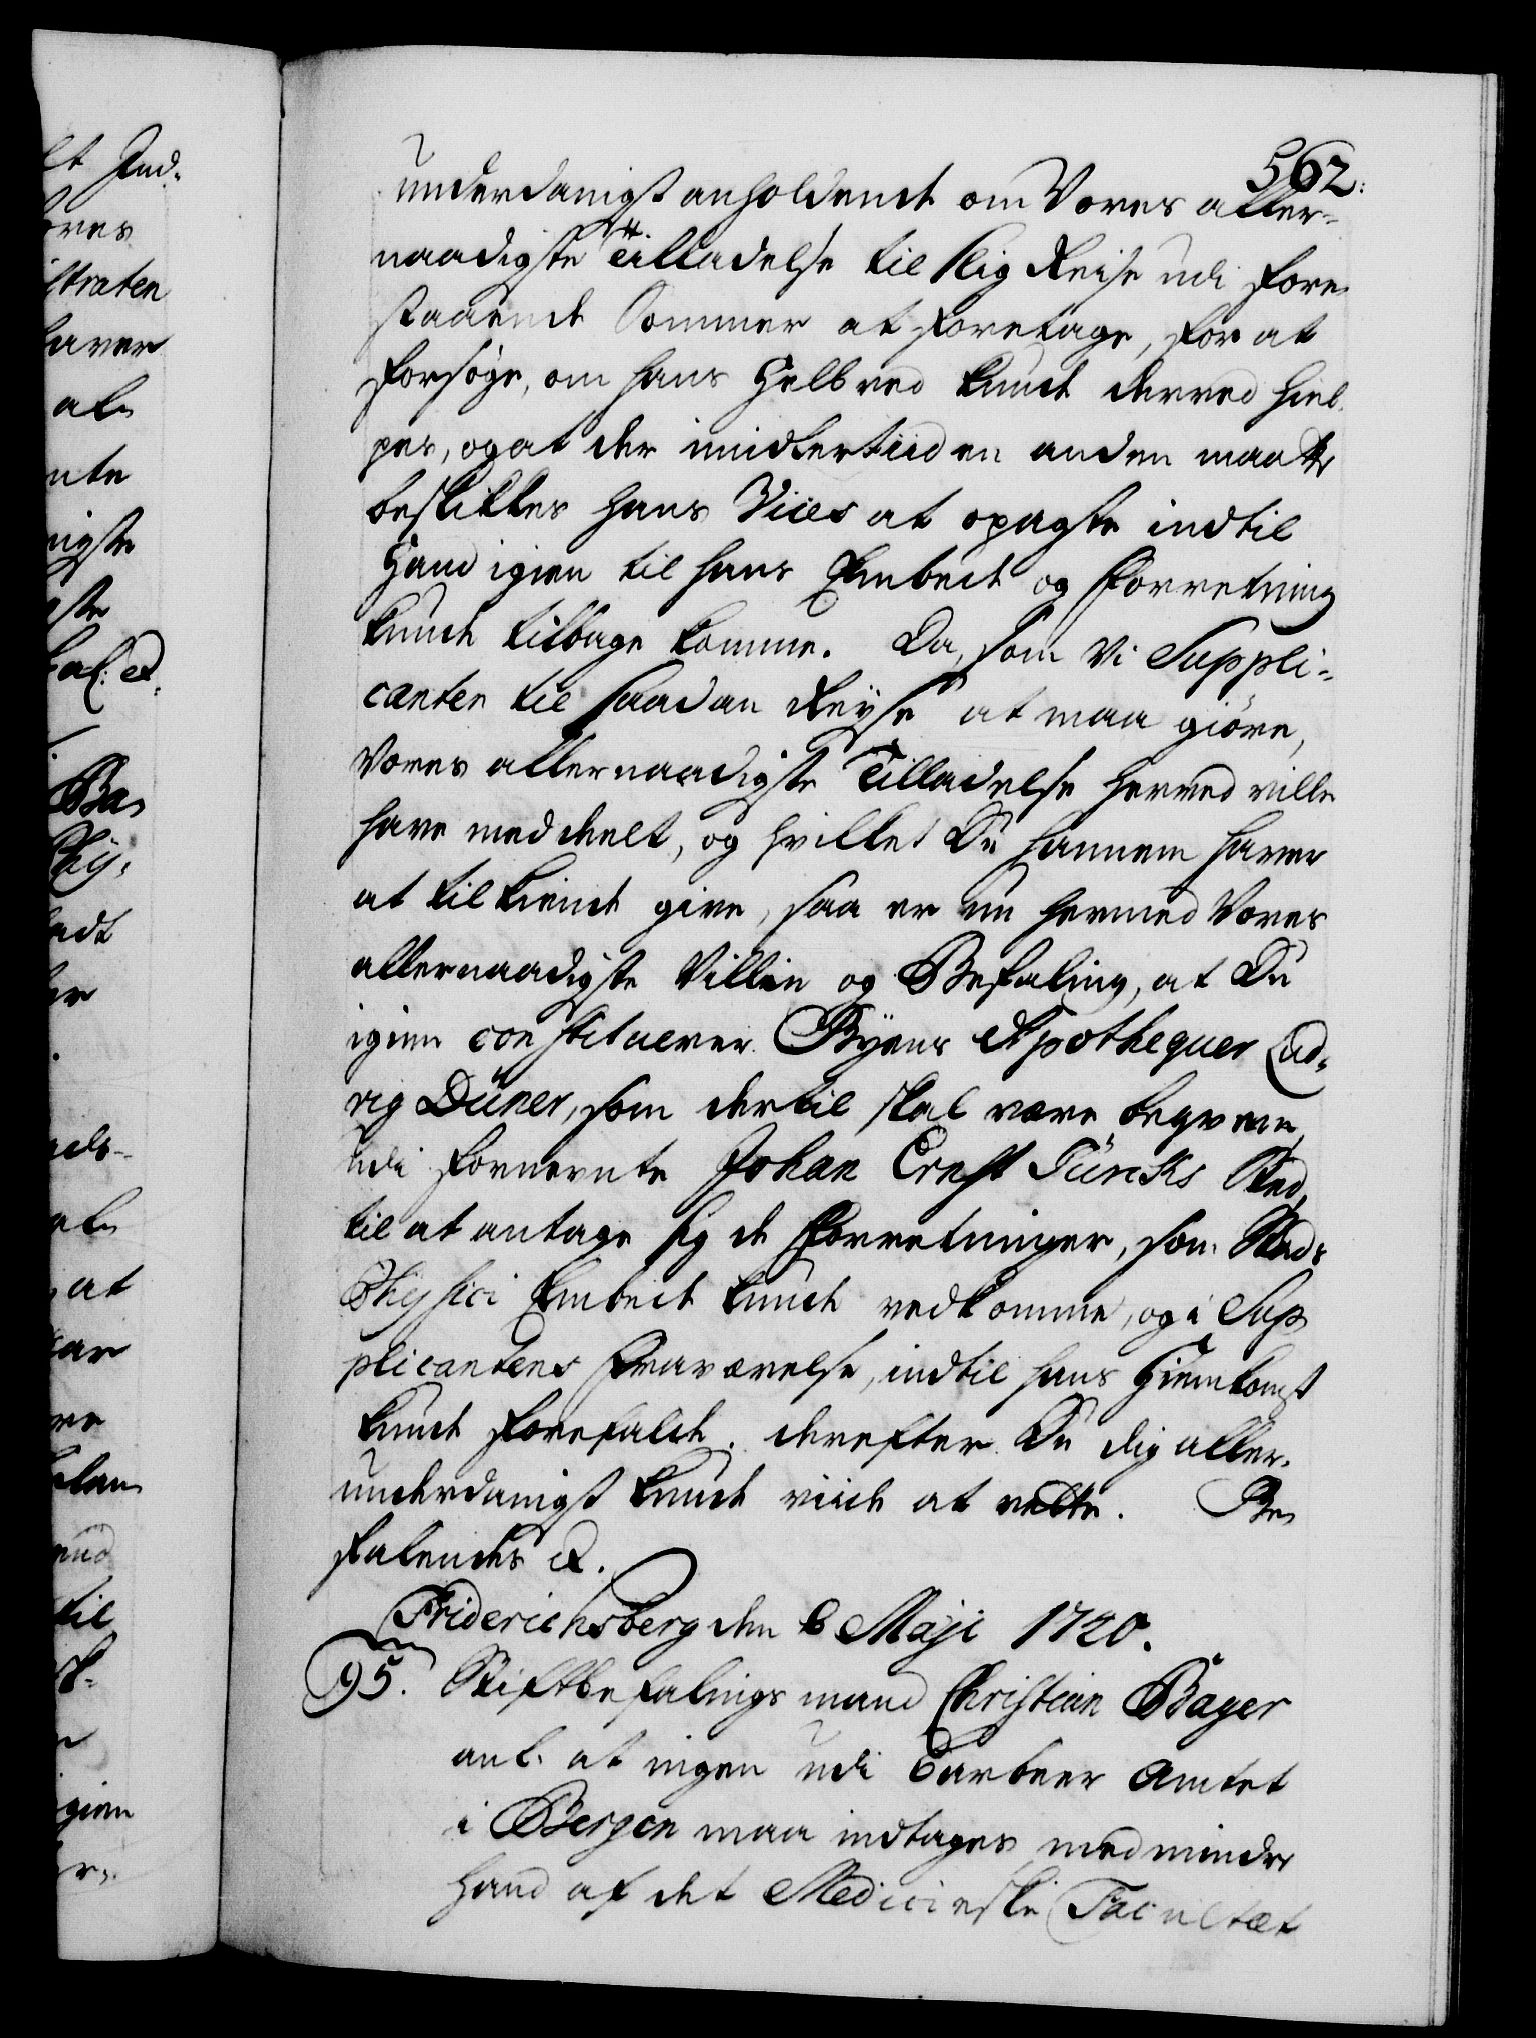 562.
underdanigst anholdende om Vores aller-
naadigste Tilladelse til slig Reise udi fore-
staaende Sommer at foretage, for at
forsøge, om hans Helbred kunde derved hiel-
pes, og at der imidlertiid en anden maatte
beskikkes hans Vices at opagte indtil
Hand igien til hans Embede og Forretning
kunde tilbage komme. Da, som Vi Suppli-
canten til saadan Reyse at maa giøre,
Vores allernaadigste Tilladelse herved ville
have meddeelt, og hvilket Du hannem haver
at tilkiende give, saa er nu hermed Vores
allernaadigste Villie og Befaling, at Du
igien constituerer Byens Apothequer Lud-
vig Düner, som dertil skal være beqvem,
udi fornevnte Johan Ernst Türcks Sted,
til at antage sig de Forretninger, som Stads
Physici Embede kunde vedkomme, og i Sup-
plicantens Fraværelse, indtil hans Hiemkomst
kunde forefalde. derefter Du dig aller-
underdanigst kunde viide at rette. Be-
falendes &.
Friderichsberg den 6 Maji 1720.
95. Stiftbefalingsmand Christian Bager
anl. at ingen udi Barbeer Amtet
i Bergen maa indtages, med mindre
hand af det Medicinske Facultæt